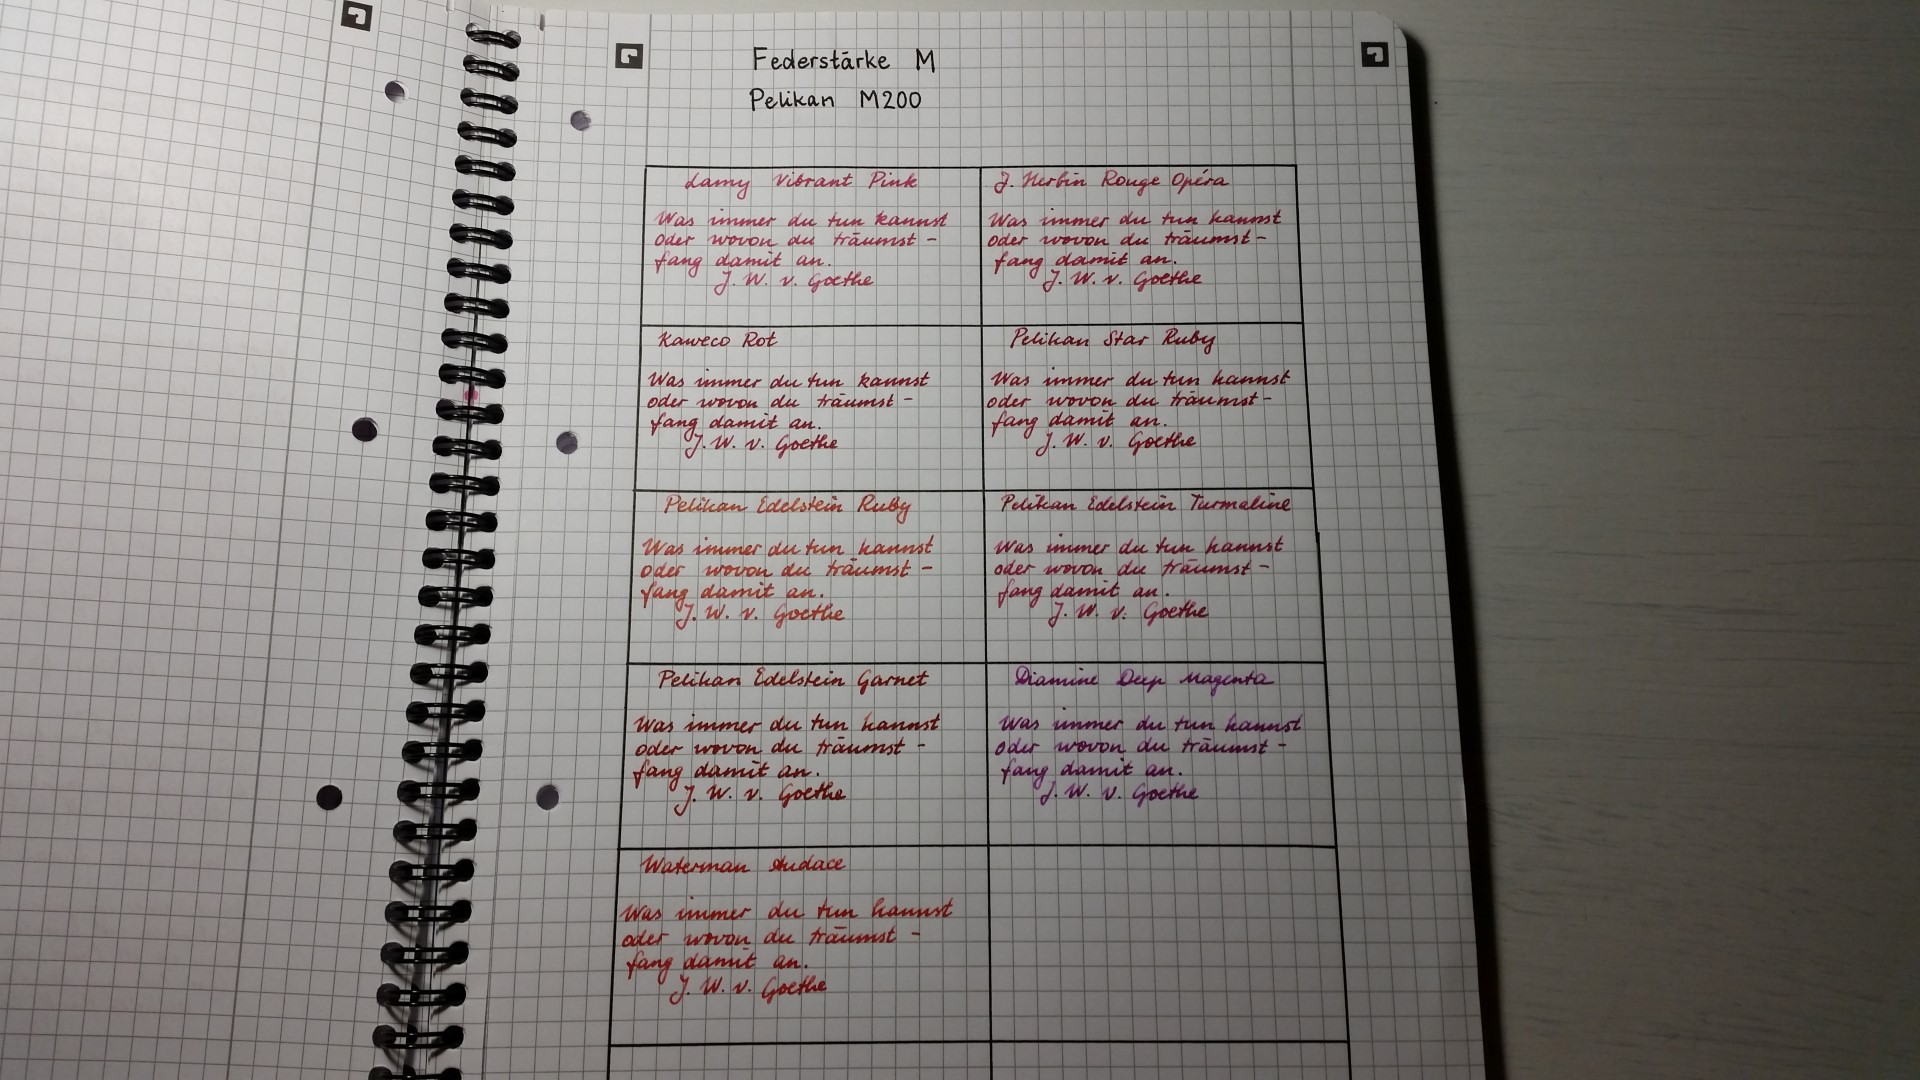 Federstärke M
Pelikan M200
Lamy Vibrant Pink
Was immer du tun kannst
oder wovon du träumst -
fang damit an.
J. W. v. Goethe
J. Herbin Rouge Opéra
Was immer du tun kannst
oder wovon du träumst -
fang damit an.
J. W. v. Goethe
Kaweco Rot
Was immer du tun kannst
oder wovon du träumst -
fang damit an.
J. W. v. Goethe
Pelikan Star Ruby
Was immer du tun kannst
oder wovon du träumst -
fang damit an.
J. W. v. Goethe
Pelikan Edelstein Ruby
Was immer du tun kannst
oder wovon du träumst -
fang damit an.
J. W. v. Goethe
Pelikan Edelstein Turmaline
Was immer du tun kannst
oder wovon du träumst -
fang damit an.
J. W. v. Goethe
Pelikan Edelstein Garnet
Was immer du tun kannst
oder wovon du träumst -
fang damit an.
J. W. v. Goethe
Diamine Deep Magenta
Was immer du tun kannst
oder wovon du träumst -
fang damit an.
J. W. v. Goethe
Waterman Audace
Was immer du tun kannst
oder wovon du träumst -
fang damit an.
J. W. v. Goethe